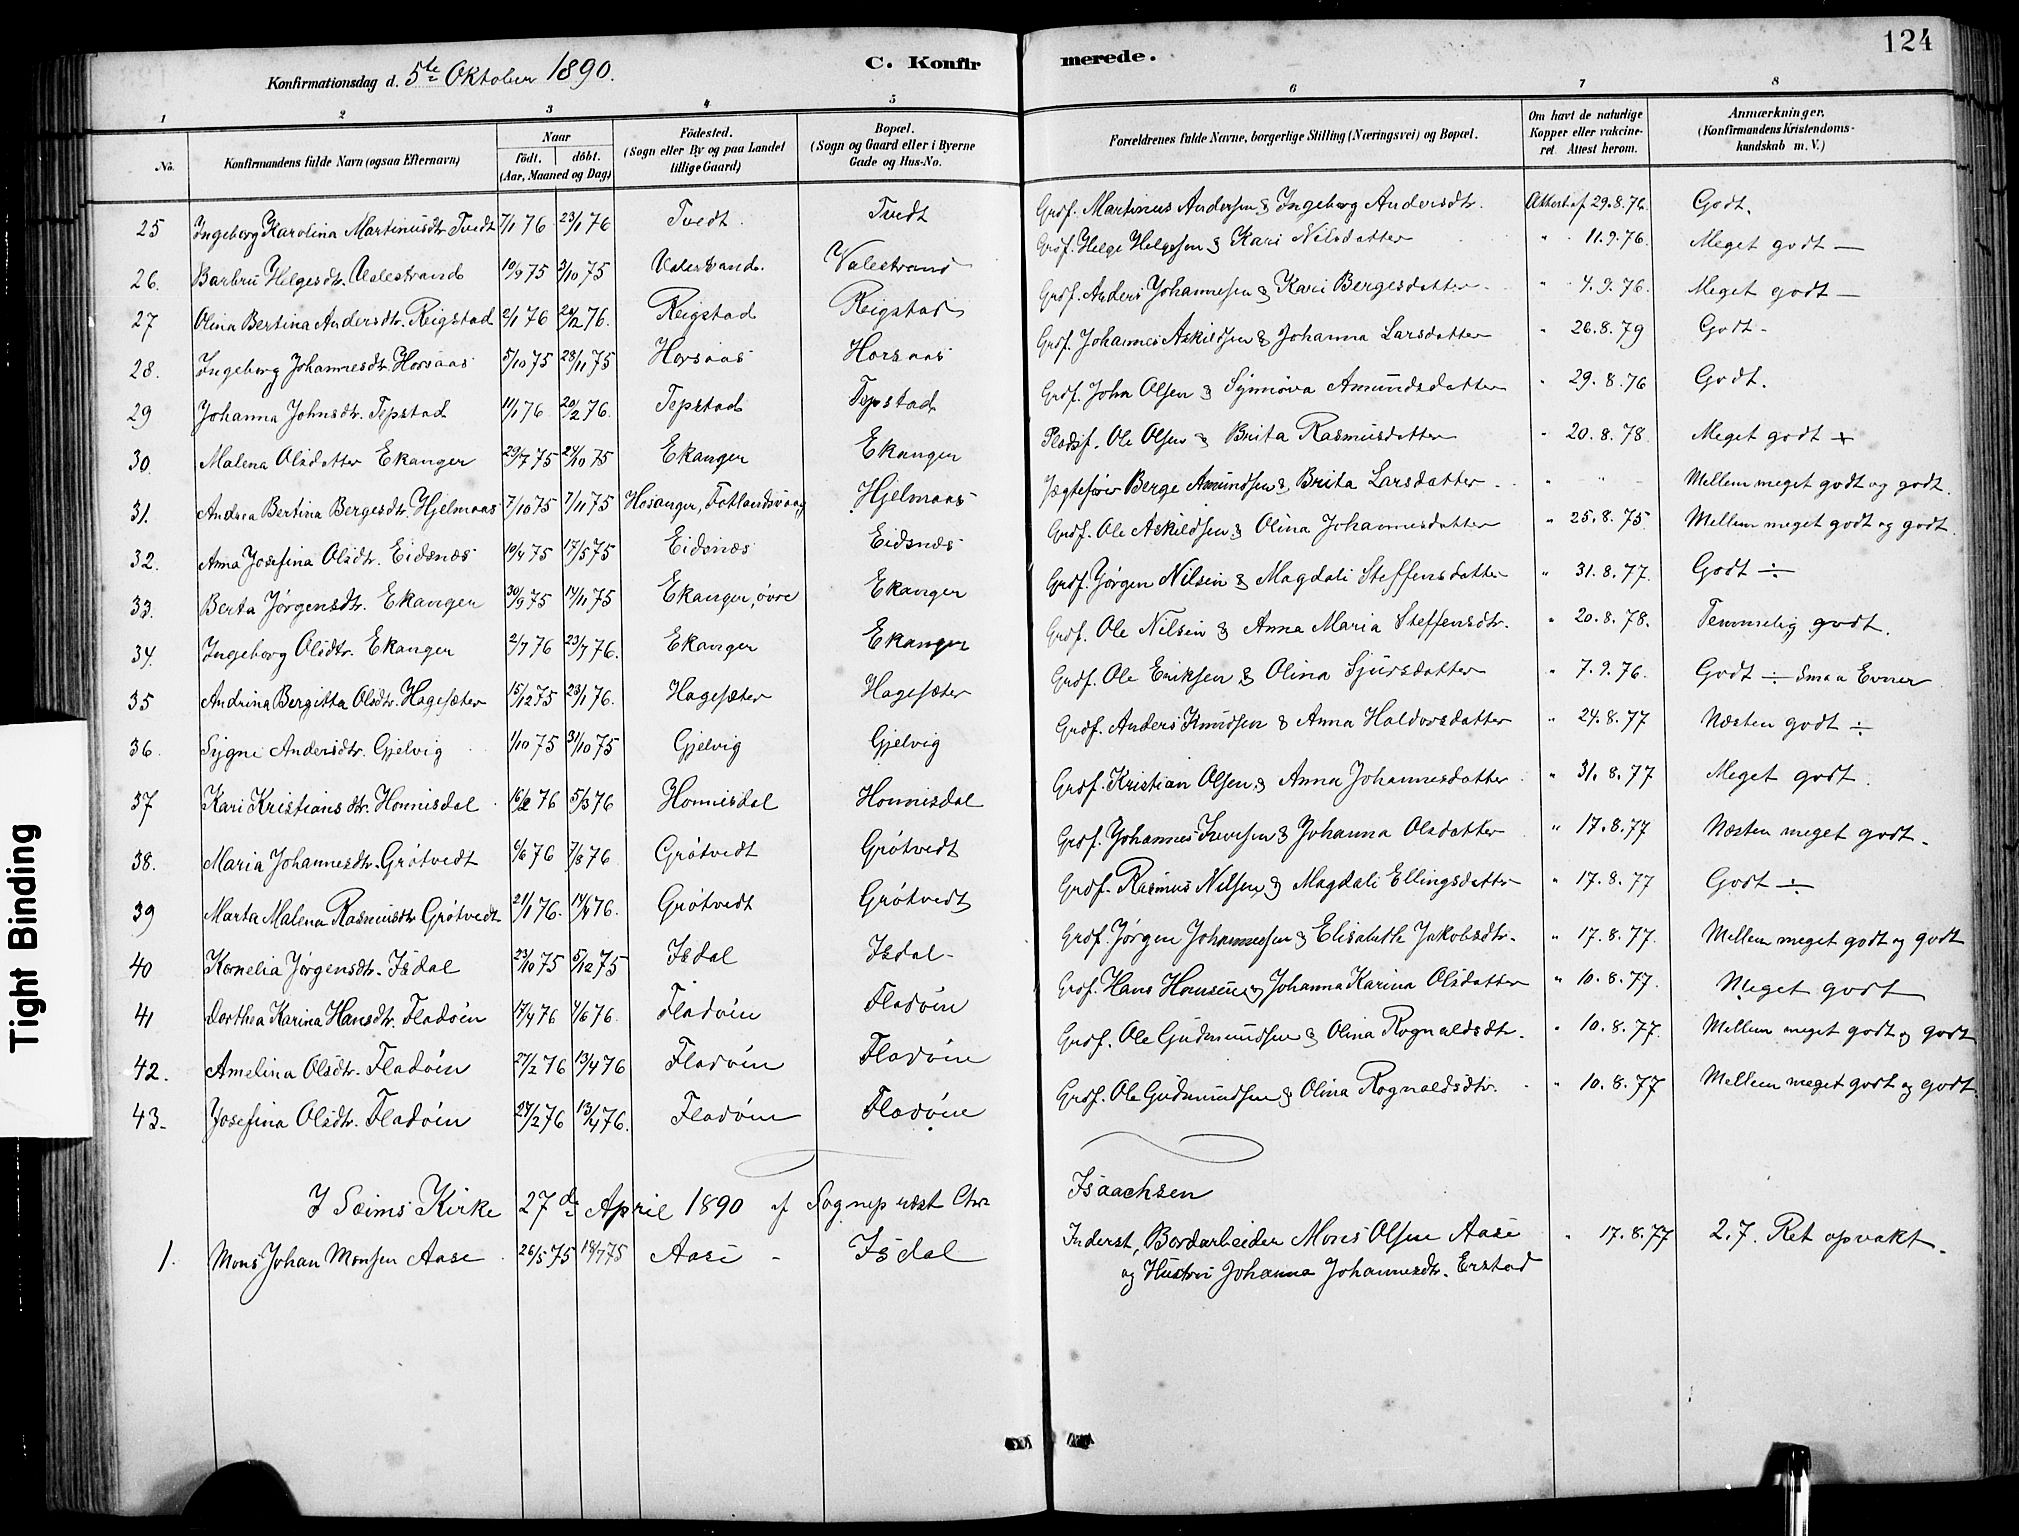 124
Konfirmationsdag d. 5te Oktober 1890. C. Konfirmerede.
1 2 3 4 5 6 7 8
No. Konfirmandens fulde Navn (ogsaa Efternavn) Naar födt. döbt. (Aar, Maaned og Dag) Födested. (Sogn eller By og paa Landet tillige Gaard) Bopæl. (Sogn og Gaard eller i Byerne Gade og Hus-No. Forældrenes fulde Navne, borgerlige Stilling (Næringsvei) og Bopæl. Om havt de naturlige Kopper eller vaccineret. Attest herom. Anmærkninger. (Konfirmandens Kristendomskundskab m. V.)
25 Ingeborg Karolina Martinusdtr. Tvedt 7/1 76 23/1 76 Tvedt Tvedt Grdf. Martinus Andersen & Ingeborg Andersdtr. Attest af 29.8.76. Godt.
26. Barbru Helgesdtr. Valestrand 10/9 75 3/10 75 Valestrand. Valestrand Grdf. Helge Helgesen & Kari Nilsdatter " 11.9.76. Meget godt —
27 Olina Bertina Andersdtr. Reigstad 2/1 76 20/2 76. Reigstad Reigstad Grdf. Anders Johannesen & Kari Bergesdatter " 4.9.76. Meget godt —
28. Ingeborg Johannesdtr. Horsaas 5/10 75 28/11 75 Horsaas Horsaas Grdf. Johannes Askildsen & Johanna Larsdatter " 26.8.79 Godt -
29 Johanna Johnsdtr. Tepstad 11/1 76. 20/2 76. Tepstad Tepstad Grdf. John Olsen & Synnöva Amundsdatter " 29.8.76 Godt.
30. Malena Olsdatter Ekanger 29/7 75 24/10 75 Ekanger Ekanger Pladsf. Ole Olsen & Brita Rasmusdatter " 20.8.78. Meget godt ÷
31. Andrea Bertina Bergesdtr. Hjelmaas 7/10 75 7/11 75 Hosanger, Fotlandsvaag Hjelmaas Jægtefører Berge Amundsen & Brita Larsdatter - " " Mellem meget godt og godt.
32. Anna Josefina Olsdtr. Eidsnæs 10/4 75 17/5 75 Eidsnæs Eidsnæs Grdf. Ole Askildsen & Olina Johannesdatter " 25.8.75. Mellem meget godt og godt.
33. Berta Jørgensdtr. Ekanger 30/9 75 14/11 75 Ekanger, övre Ekanger Grdf. Jørgen Nilsen & Magdali Steffensdatter " 31.8.77. Godt ÷
34. Ingeborg Olsdtr. Ekanger 2/7 76 23/7 76. Ekanger Ekanger Grdf. Ole Nilsen & Anna Maria Steffensdtr. " 20.8.78. Temmelig godt.
35 Andrina Bergitta Olsdtr. Hagesæter 15/12 75 23/1 76. Hagesæter Hagesæter Grdf. Ole Eriksen & Olina Sjursdatter " 7.9.76. Godt ÷ Smaa Evner
36. Sygni Andersdtr. Gjelvig 1/10 75 31/10 75 Gjelvig Gjelvig Grdf. Anders Knudsen & Anna Haldorsdatter " 24.8.77 Næsten godt ÷
37 Kari Kristiansdtr. Honnisdal 16/2 76 5/3 76 Honnisdal Honnisdal Grdf. Kristian Olsen & Anna Johannesdatter " 31.8.77 Meget godt.
38. Maria Johannesdtr. Grøtvedt 6/6 76 7/8 76. Grøtvedt Grøtvedt Grdf. Johannes Iversen & Johanna Olsdatter " 17.8.77 Næsten meget godt.
39 Marta Malena Rasmusdtr. Grøtvedt 21/1 76. 17/4 76. Grøtvedt Grøtvedt Grdf. Rasmus Nilsen & Magdali Ellingsdatter " 17.8.77 Godt ÷
40 Kornelia Jørgensdtr. Isdal 23/10 75 5/12 75 Isdal Isdal - Grdf. Jørgen Johannesen & Elisabeth Jakobsdtr. " 17.8.77. Mellem meget godt og godt
41 Dorthea Karina Hansdtr. Fladöin 17/4 76 4/6 76. Fladöin Fladöin Grdf. Hans Hansen & Johanna Karina Olsdatter " 10.8.77. Meget godt
42. Amelina Olsdtr. Fladöin 27/2 76 13/4 76 Fladöin Fladöin Grdf. Ole Gudmundsen & Olina Rognaldsdtr. " 10.8.77. Mellem meget godt og godt
43. Josefina Olsdtr. Fladöin 27/2 76 13/4 76. Fladöin Fladöin Grdf. Ole Gudmundsen & Olina Rognaldsdtr. " 10.8.77 Mellem meget godt og godt.
I Seims Kirke 27de April 1890 af Sogneprest Chr. Isaachsen
1. Mons Johan Monsen Aase 26/5 75 18/7 75 Aase - Isdal Inderst, Bordarbeider Mons Olsen Aase " 17.8.77 2.7. Ret opvakt.
og Hustru Johanna Johannesdtr. Erstad
Tight Binding